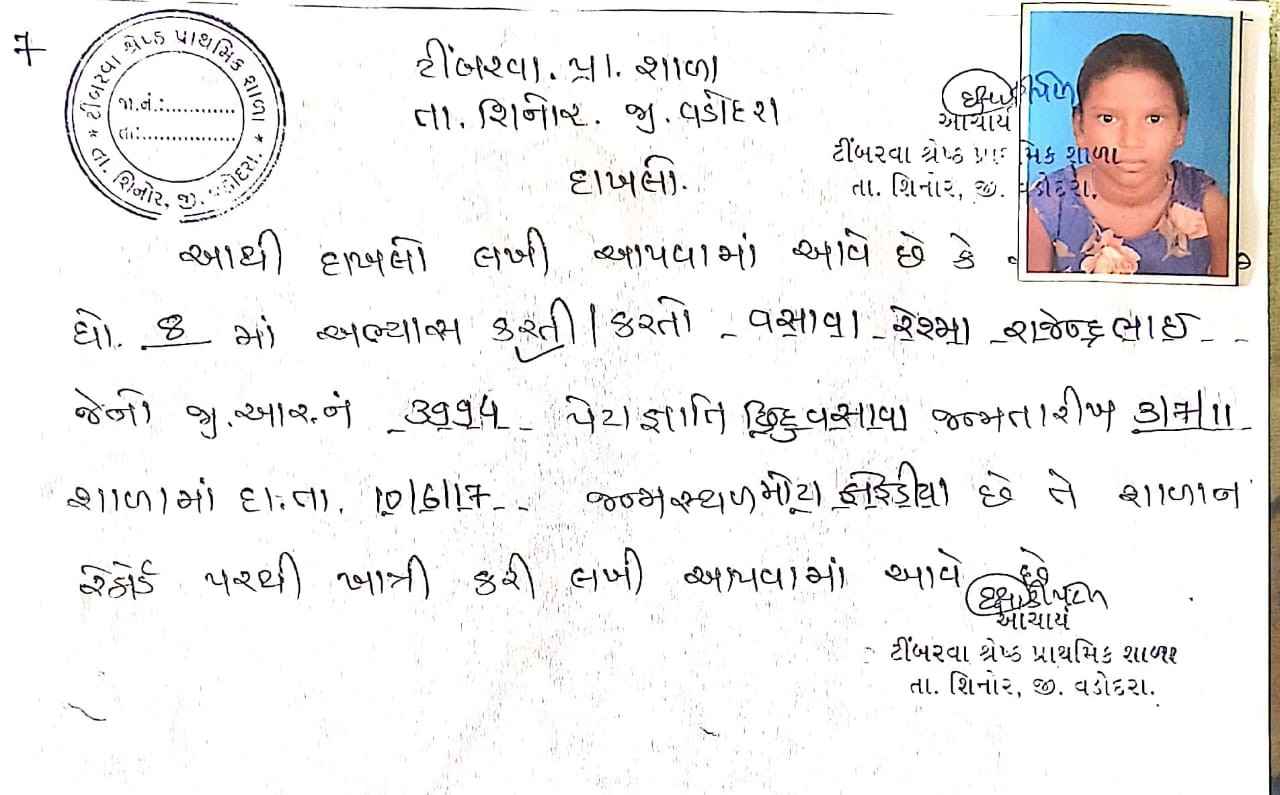 7
ટીંબરવા શ્રેષ્ઠ પ્રાથમિક શાળા
જા.નં.:............
તા.:................
* તા. શિનોર, જી. વડોદરા. *
ટીંબરવા. પ્રા. શાળા
તા. શિનોર. જી. વડોદરા
દાખલો.
આચાર્ય
ટીંબરવા શ્રેષ્ઠ પ્રાથમિક શાળા
તા. શિનોર, જી. વડોદરા.
આથી દાખલો લખી આપવામાં આવે છે કે
ધો. 8 માં અભ્યાસ કરતી / કરતો વસાવા રેશ્મા રાજેન્દ્રભાઇ
જેનો જી.આર.નં 3994 પેટા જ્ઞાતિ હિન્દુ વસાવા જન્મ તારીખ 3/7/11
શાળામાં દા.તા. 10/6/17 જન્મ સ્થળ મોટા છે તે શાળાન
રેકોર્ડ પરથી ખાત્રી કરી લખી આપવામાં આવે છે
આચાર્ય
ટીંબરવા શ્રેષ્ઠ પ્રાથમિક શાળા
તા. શિનોર, જી. વડોદરા.